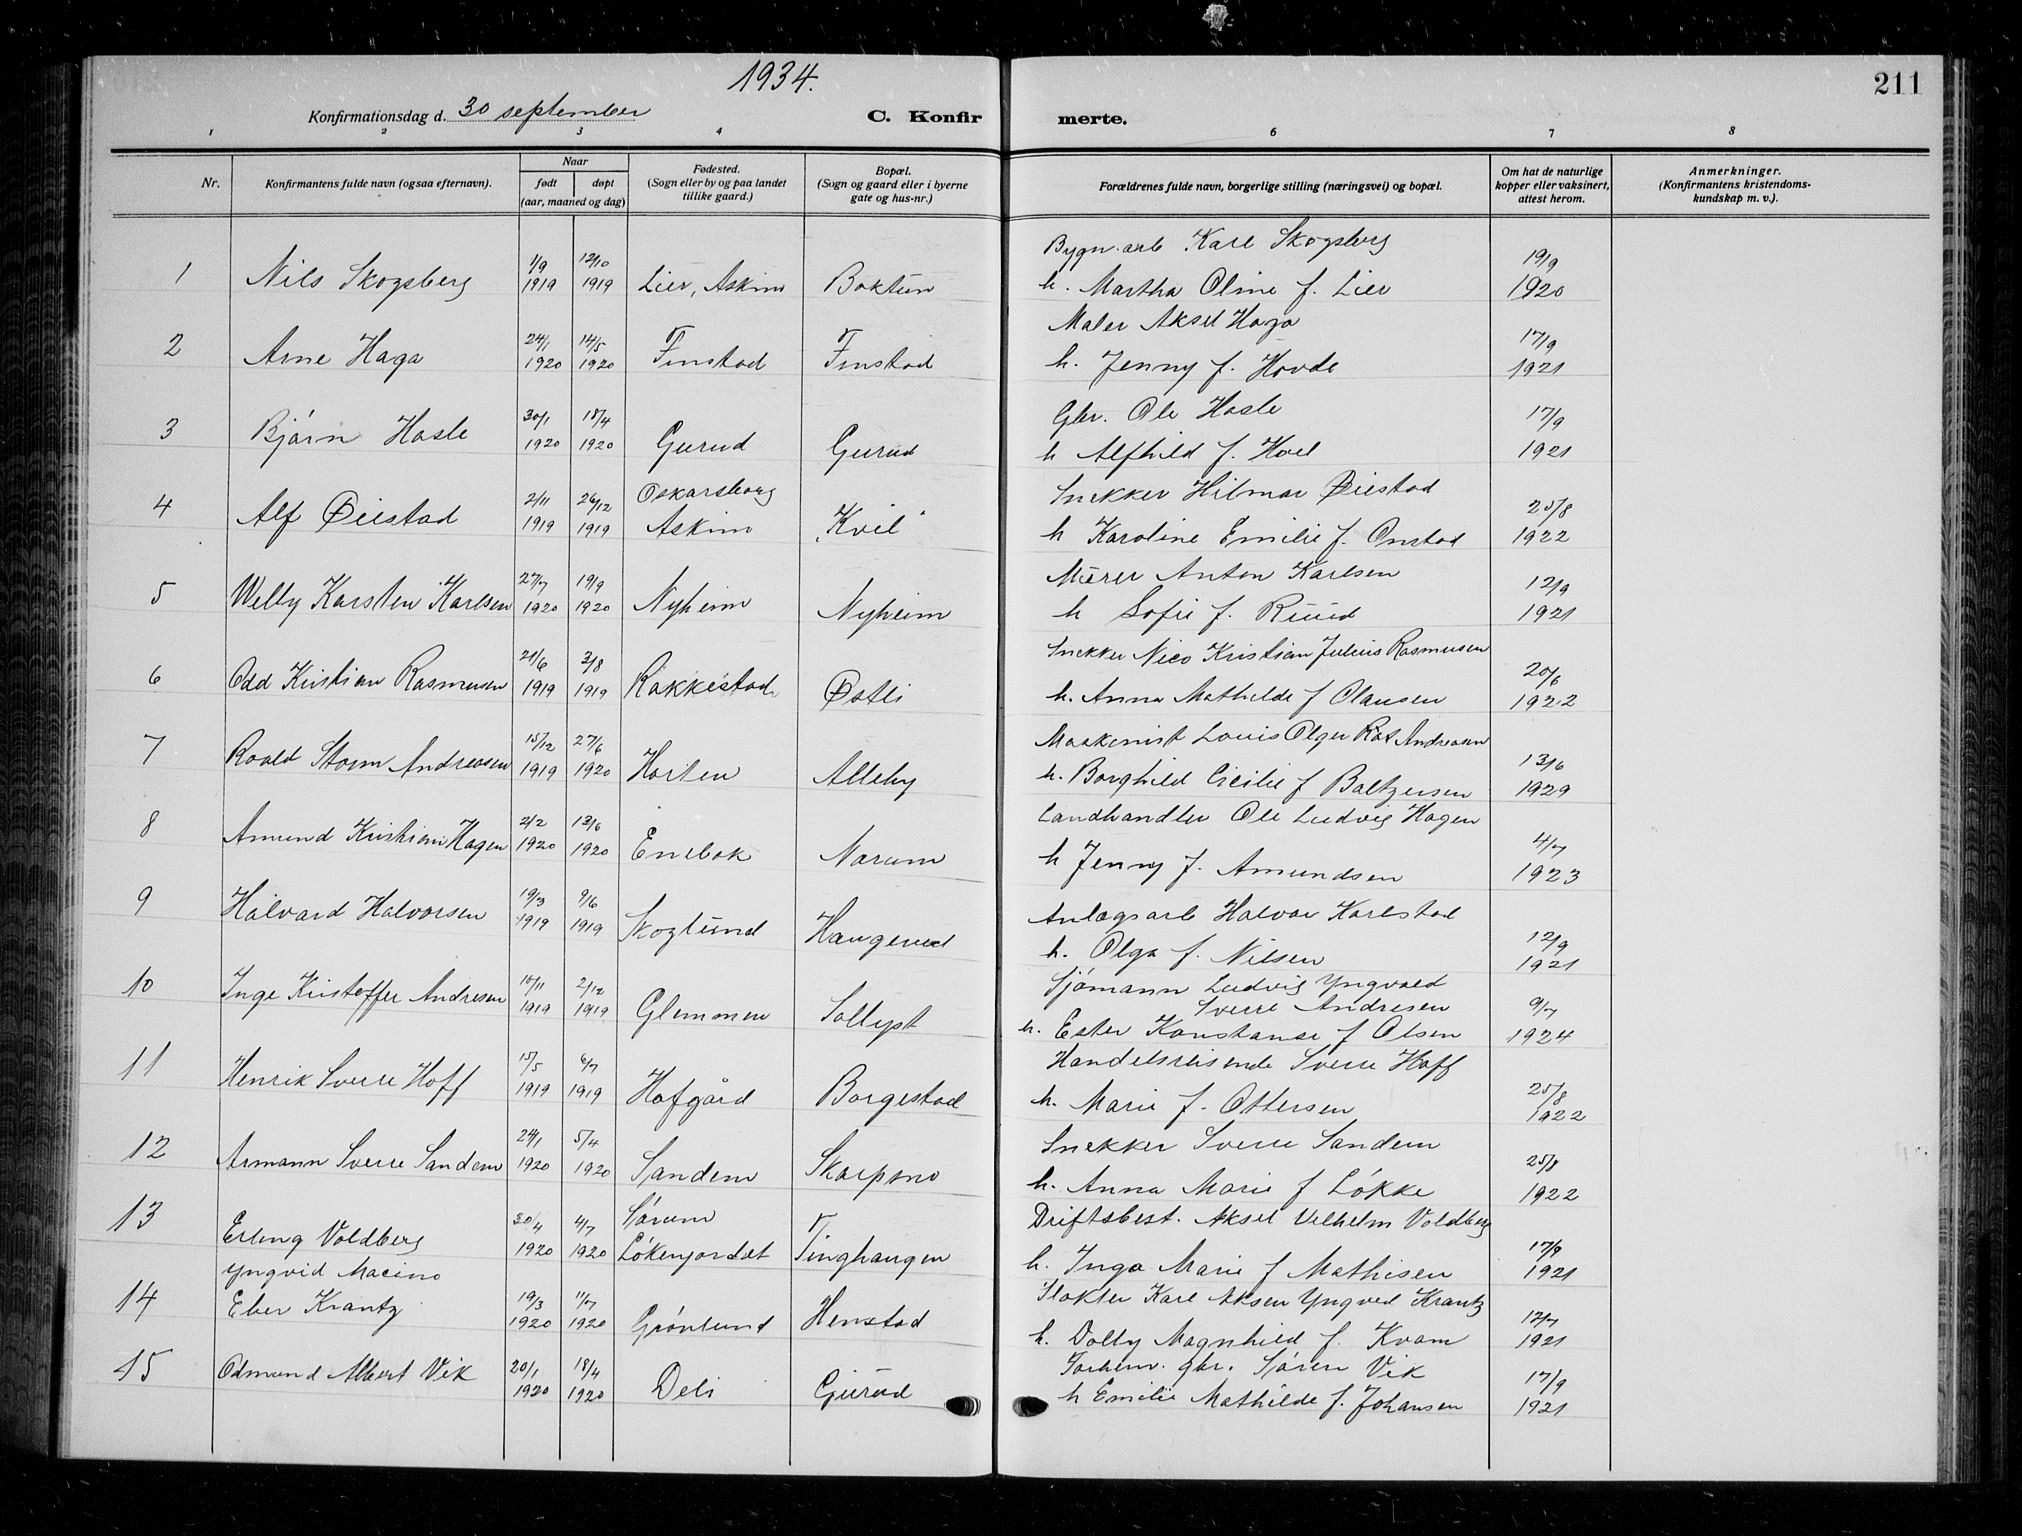 1934.
211
Konfirmationsdag d. 30 september
C. Konfir merte.
1 2 3 4 6 7 8
Nr.
Konfirmantens fulde navn (ogsaa efternavn).
Naar
født døpt
(aar, maaned og dag)
Fødested.
(Sogn eller by og paa landet
tillike gaard.)
Bopæl.
(Sogn og gaard eller i byerne
gate og hus-nr.)
Forældrenes fulde navn, borgerlige stilling (næringsvei) og bopæl.
Om hat de naturlige
kopper eller vaksinert,
attest herom.
Anmerkninger.
(Konfirmantens kristendoms-
kundskap m. v.).
Bygn. arb Karl Skogsberg
1 Nils Skogsberg 1/9 1919 12/10 1919 Lier, Askim Boktun h. Martha Oline f. Lier 19/9 1920
Maler Aksel Haga
2 Arne Haga 24/1 1920 14/5 1920 Finstad Finstad h. Jenny f. Hovde 17/9 1921
Gbr. Ole Hasle
3 Bjørn Hasle 30/1 1920 18/4 1920 Gurud Gurud h Alfhild f. Hoel 17/9 1921
Snekker Hilmar Øiestad
4 Alf Øiestad 2/11 1919 26/12 1919 Oskarsborg Askim Kvil h Karoline Emilie f. Onstad 25/8 1922
Murer Anton Karlsen
5 Willy Karsten Karlsen 27/7 1920 19/9 1920 Nyheim Nyheim h Sofie f. Ruud 12/9 1921
Snekker Nico Kristian Julius Rasmussen
6 Odd Kristian Rasmussen 21/6 1919 3/8 1919 Rakkestad Østli h. Anna Mathilde f Olausen 20/6 1922
Maskinist Louis Olger Andreasen
7 Roald Storm Andreasen 15/12 1919 27/6 1920 Horten Alleby h. Borghild Cicilie f Baltzersen 13/6 1929
Landhandler Ole Ludvig Hagen
8 Amund Kristian Hagen 2/2 1920 13/6 1920 Enebak Narum h Jenny f. Amundsen 4/7 1923
Anlægsarb Halvar Karlstad
9 Halvard Halvorsen 19/3 1919 9/6 1919 Skoglund Haugerud h. Olga f. Nilsen 12/9 1921
Sjømann Ludvig Yngvald
Sverre Andresen
10 Inge Kristoffer Andresen 10/11 1919 2/12 1919 Glemmen Sollyst h. Ester Konstanse f Olsen 9/7 1924
Handelsreisende Sverre Hoff
11 Henrik Sverre Hoff 15/5 1919 6/7 1919 Hofgård Borgestad h. Marie f. Ottersen 25/8 1922
Snekker Sverre Sandem
12 Armann Sverre Sandem 24/1 1920 5/4 1920 Sandem Skarpsno h. Anna Marie f Løkke 25/8 1922
Driftsbest. Aksel Vilhelm Voldberg
13 Erling Voldberg 30/4 1920 4/7 1920 Sørum Løkenjordet Tinghaugen h. Inga Marie f Mathisen 17/9 1921
Yngvid Macino
Slakter Karl Aksen Yngved Krantz
14 Eber Krantz 19/3 1920 11/7 1920 Grønlund Henstad h. Dolly Magnhild f. Kvam 12/7 1921
gbr. Søren Vik
15 Odmund Albert Vik 20/1 1920 18/4 1920 Deli Gurud h Emilie Mathilde f. Johansen 17/9 1921